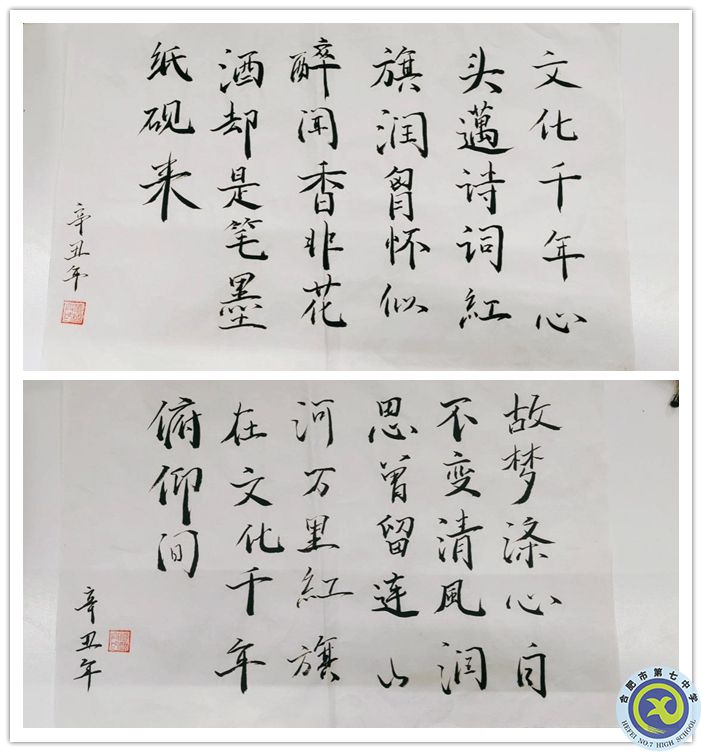 文化千年心
头邁诗词紅
旗润胷怀似
醉闻香非花
酒却是笔墨
纸砚来
辛丑年
故梦涤心自
不变清风润
思曾留连山
河万里紅旗
在文化千年
俯仰间
辛丑年
合肥市第七中学
HEFEI NO.7 HIGH SCHOOL